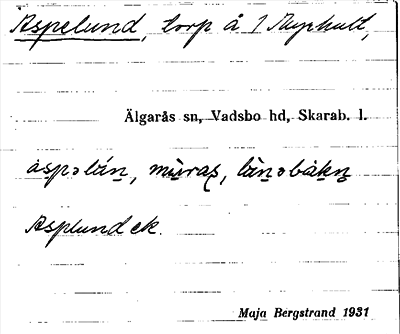 Aspelund, torp å 1 Myrhult,
Älgarås sn, Vadsbo hd, Skarab. l.
àspəlún̲, mùras̲, lùn̲əbàkn̲
Asplund ek.
Maja Bergstrand 1931